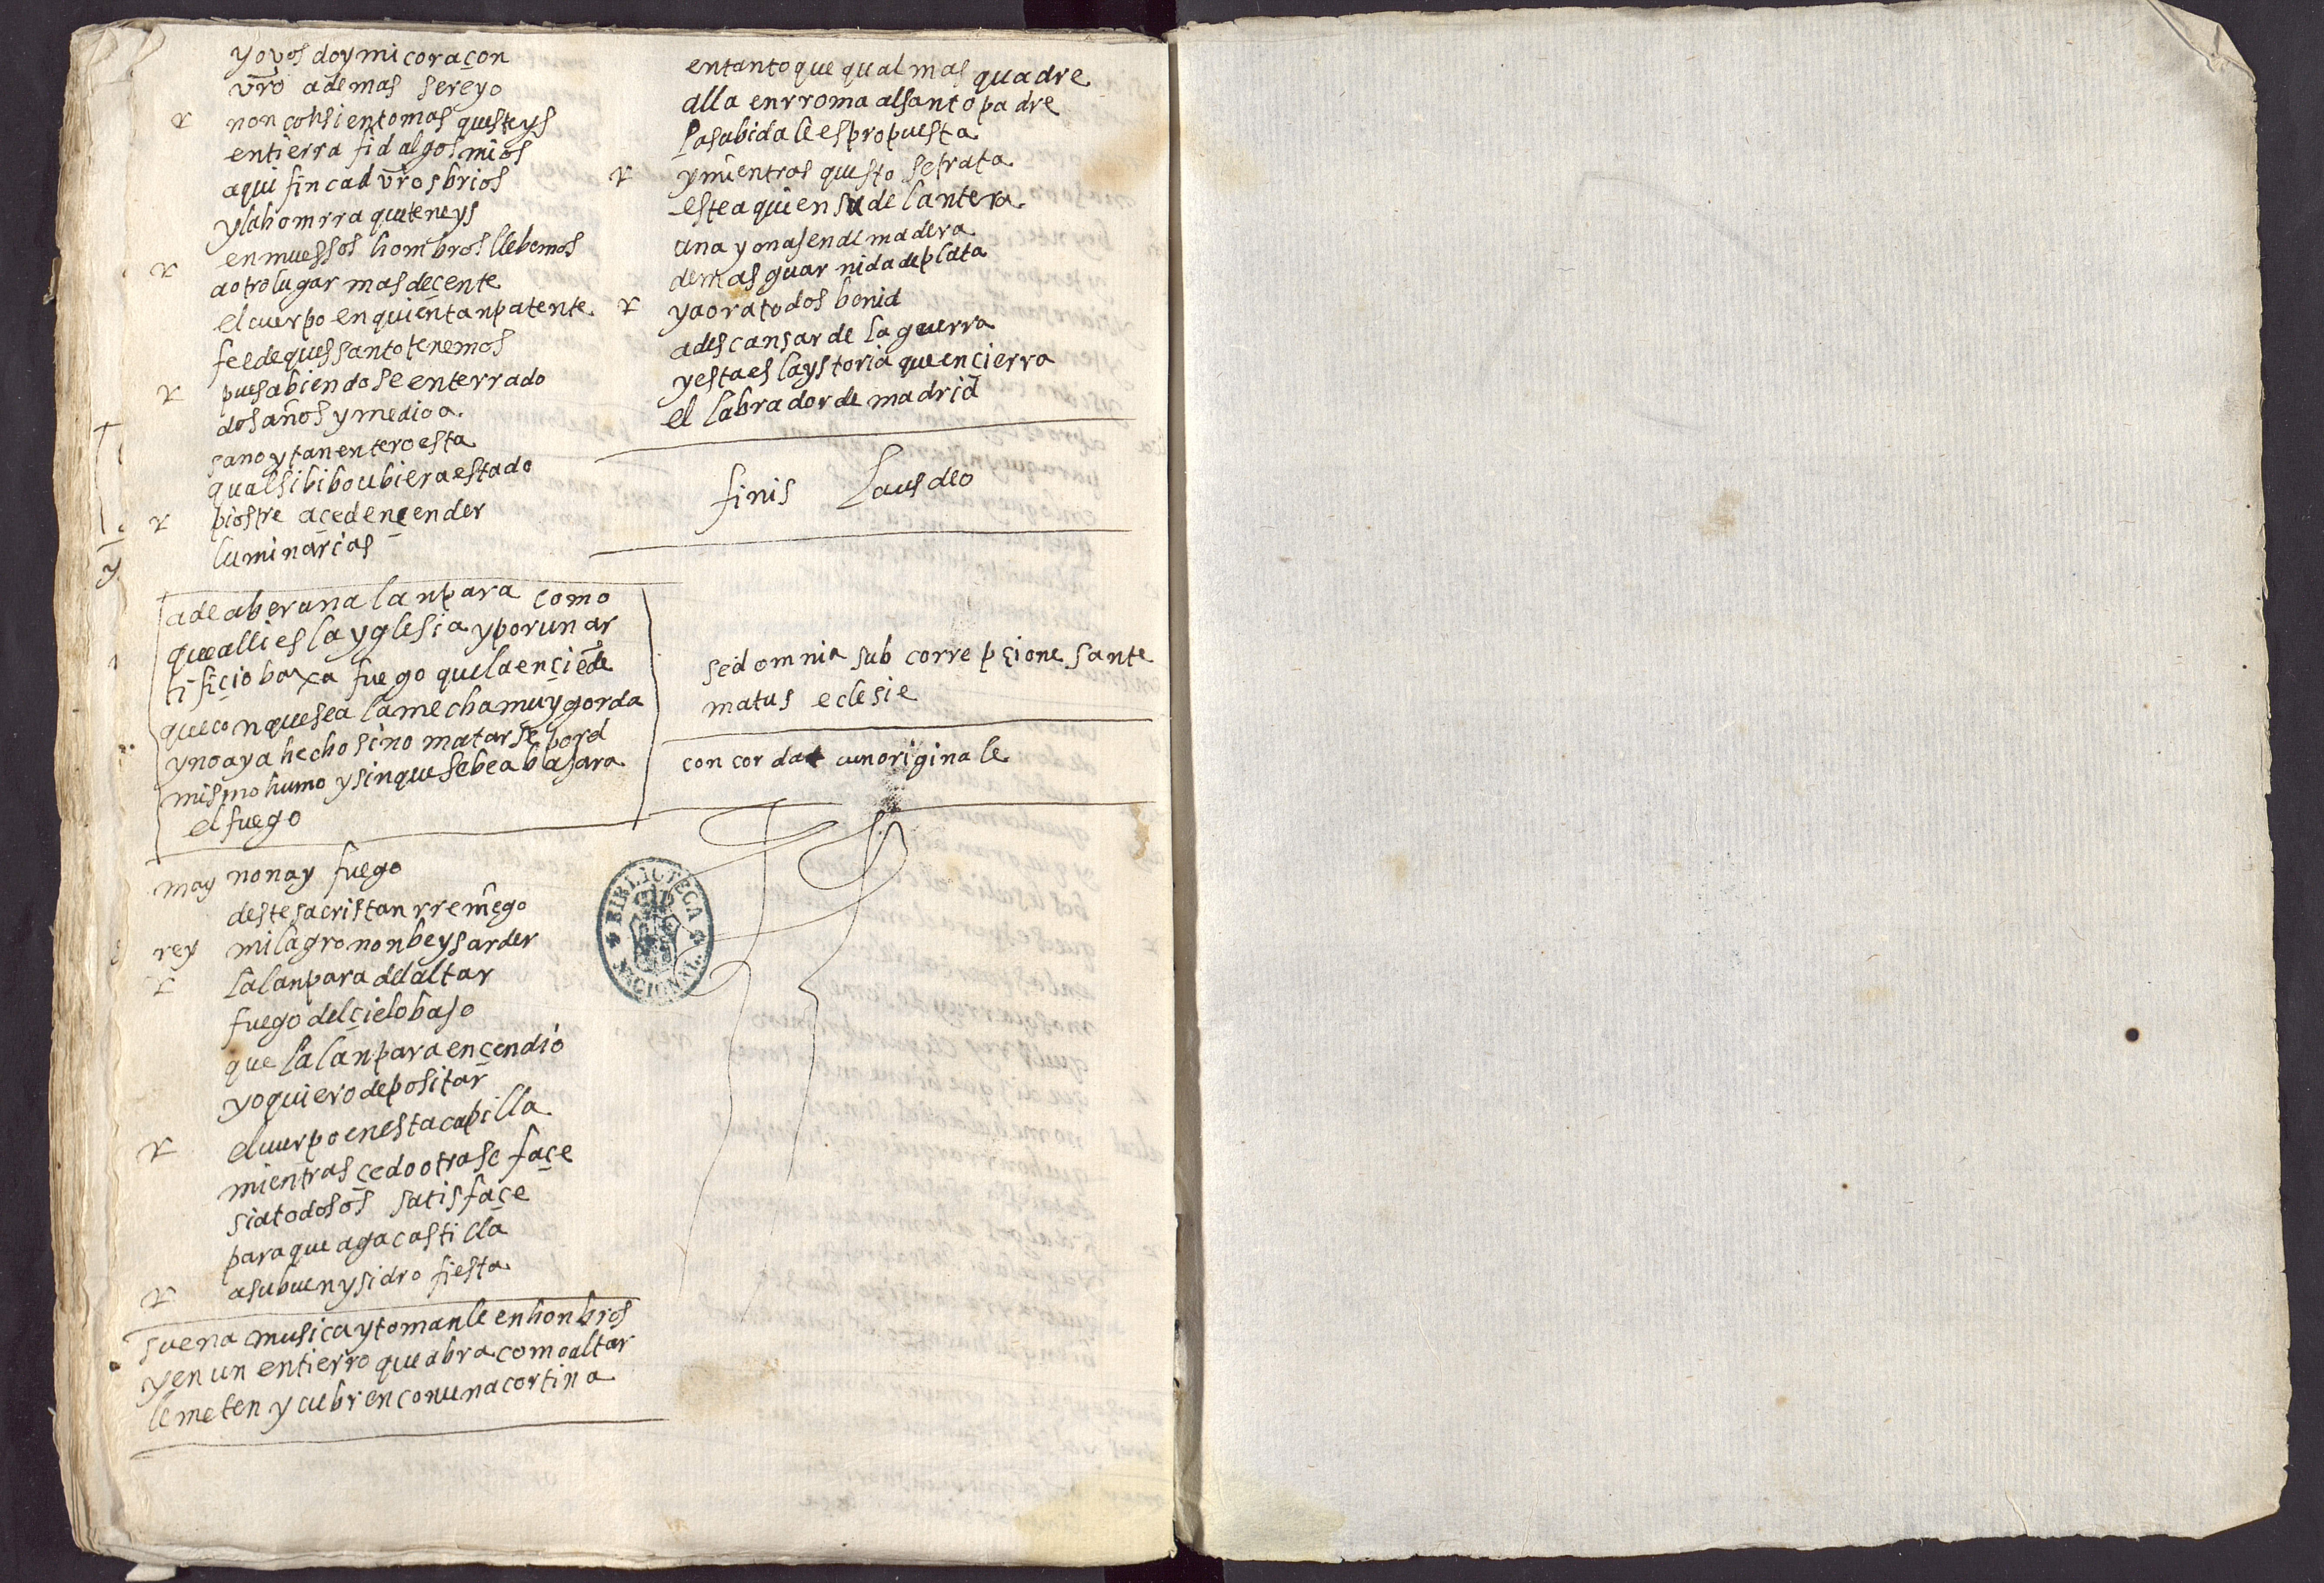 yo vos doy mi coraçon
vro ademas sere yo
r non consiento mas questeys
en tierra fidalgos mios
aqui fincad vros brios
y la homrra que teneys
en muessos hombros llebemos
r a otro lugar mas deçente
el cuerpo en quien tan patente
fee de ques santo tenemos
r pues abiendose enterrado
dos años y medio a
sano y tan entero esta
qual si bibo ubiera estado
r piostre açed ençender
luminarias
a de aber una lanpara como
que alli es la yglesia y por un ar
tifiçio baxa fuego que la ençiēde
que con que sea la mecha muy gorda
y no aya hecho sino matarse por el
mismo humo y sin que se bea bajara
el fuego
may non ay fuego
deste sacristan rreniego
rey milagro non beys arder
r la lanpara del altar
fuego del çielo bajo
que la lanpara ençendio
yo quiero depositar
r el cuerpo en esta capilla
mientras çedo otra se façe
si a todos os satisfaçe
para que aga castilla
r a su buen ysidro fiesta
suena musica y tomanle en honbros
y en un entierro que abra como altar
le meten y cubren con una cortina
en tanto que qual mas quadre
alla en rroma al santo padre
la subida le es propuesta
r y mientras questo se trata
este aqui en su delantera
una ymajen de madera
demas guarnida de plata
r y aora todos benid
a descansar de la guerra
y esta es la ystoria que ençierra
el labrador de madrid
finis Laus deo
sed omnia sub correpçione sante
matus eclesie
concordat cun originale
BIBLIOTECA NACIONAL